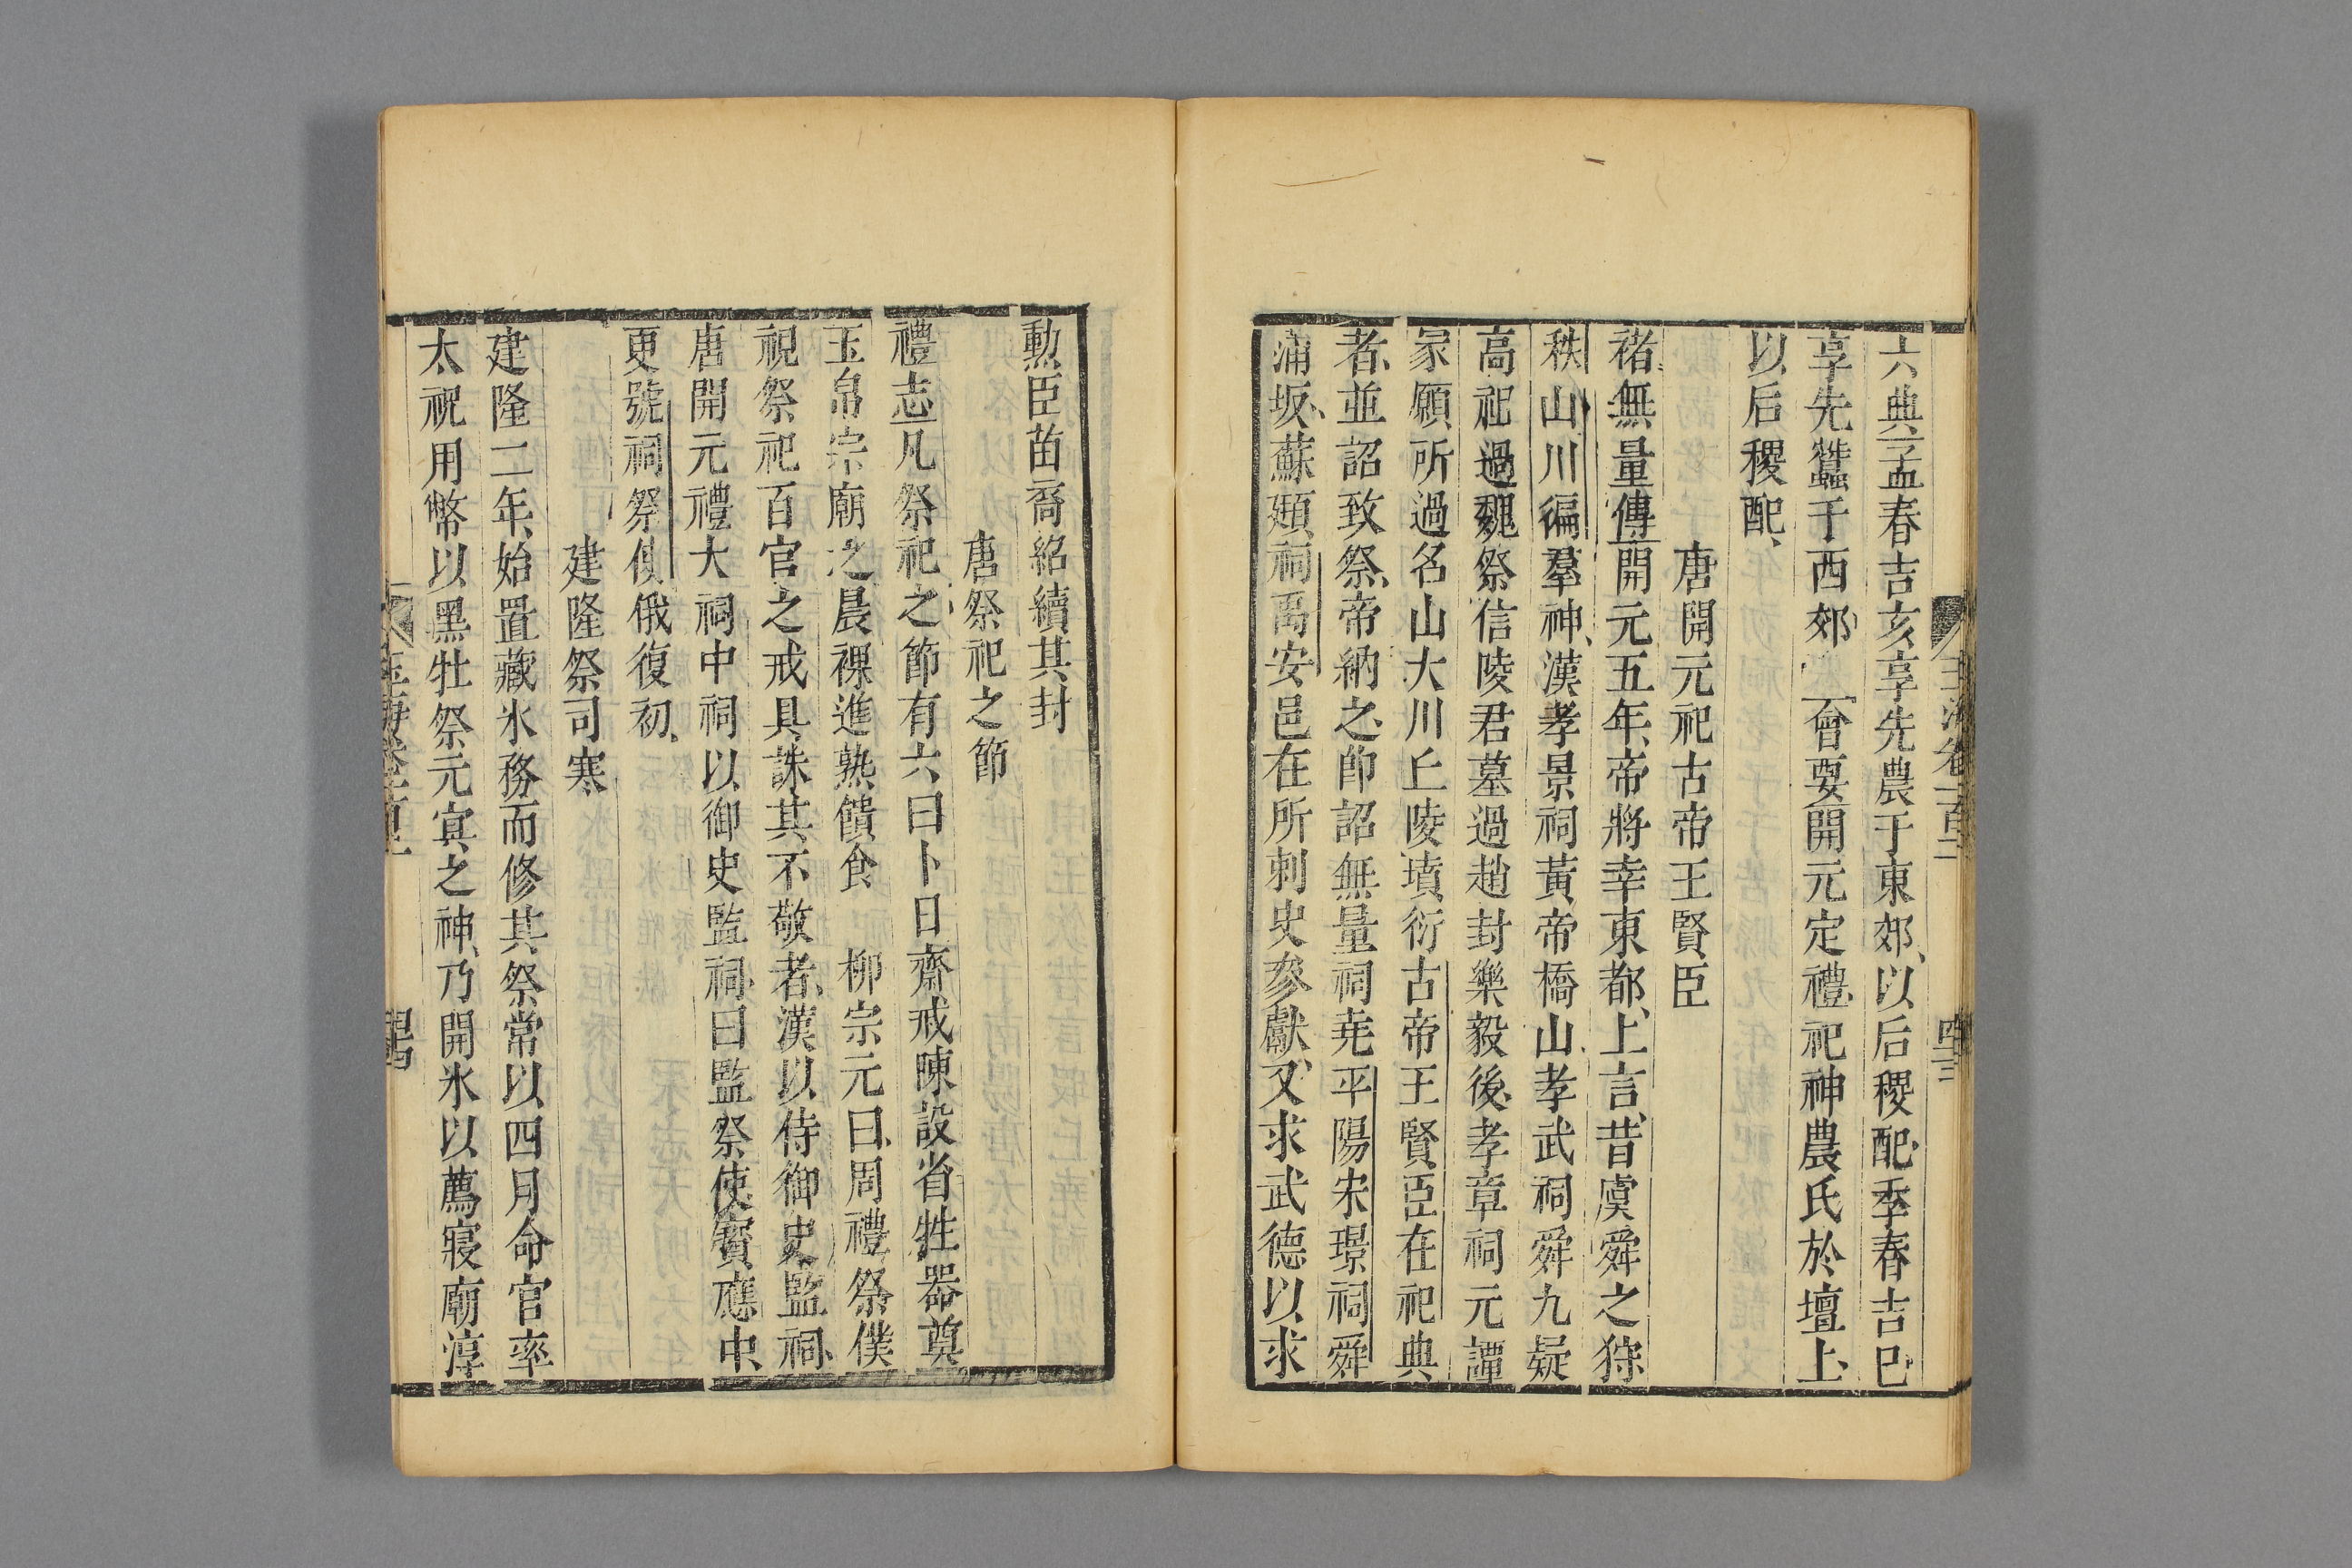 六典孟春吉亥享先農于東郊以后稷配季春吉巳
享先蠶于西郊 會要開元定禮祀神農氏於壇上
以后稷配
唐開元祀古帝王賢臣
褚無量傳開元五年帝將幸東都上言昔虞舜之狩
秩山川徧羣神漢孝景祠黃帝橋山孝武祠舜九疑
高祀過魏祭信陵君墓過趙封樂毅後孝章祠元譚
冡願所過名山大川丘陵墳衍古帝王賢臣在祀典
者並詔致祭帝納之卽詔無量祠堯平陽宋璟祠舜
蒲坂蘇頲祠禹安邑在所刺史叅獻又求武德以求
勲臣苗裔紹續其封
唐祭祀之節
禮志凡祭祀之節有六曰卜日齋戒陳設省牲器奠
玉帛宗廟之晨祼進熟饋食 柳宗元曰周禮祭僕
視祭祀百官之戒具誅其不敬者漢以侍御史監祠
唐開元禮大祠中祠以御史監祠曰監祭使寳應中
更號祠祭俱俄復初
建隆祭司寒
建隆二年始置藏氷務而修其祭常以四月命官率
太祝用幣以黑牡祭元㝠之神乃開氷以薦寢廟淳